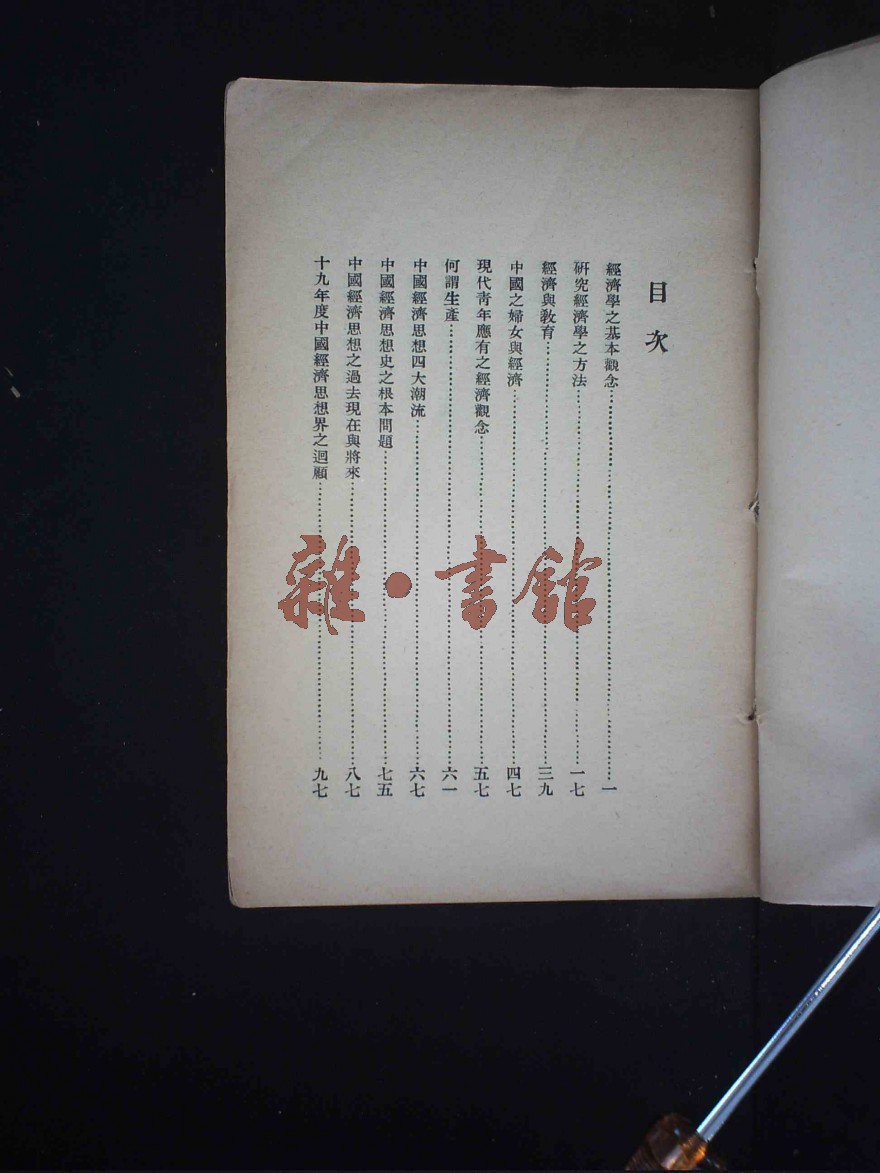 目次
經濟學之基本觀念……一
研究經濟學之方法……一七
經濟與教育……三九
中國之婦女與經濟……四七
現代青年應有之經濟觀念……五七
何謂生產……六一
中國經濟思想四大潮流……六七
中國經濟思想史之根本問題……七五
中國經濟思想之過去現在與將來……八七
十九年度中國經濟思想界之迴顧……九七
雜·書館